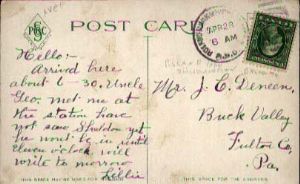 POST CARD
APR 28
6 AM
R.P.O.
Hello:-
Arrived here
about 6-30. Uncle
Geo. met me at
the station have
not saw Sheldon yet
he wont be in until
eleven o'clock. will
write to morrow
Lillie
Mr. J. C. Deneen,
Buck Valley
Fulton Co.
Pa.
THIS SPACE MAY BE USED FOR MESSAGE
THIS SPACE FOR ADDRESS ONLY